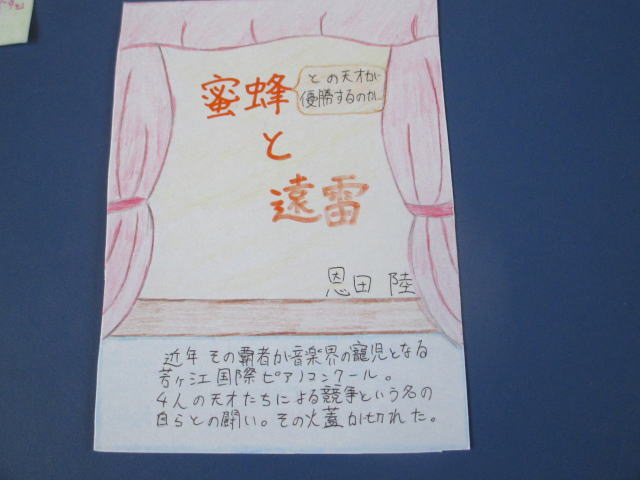 蜜蜂
どの天才が
優勝するのか…
と
遠雷
恩田 陸
近年その覇者が音楽界の寵児となる
芳ヶ江国際ピアノコンクール。
4人の天才たちによる競争という名の
自らとの闘い。その火蓋が切れた。